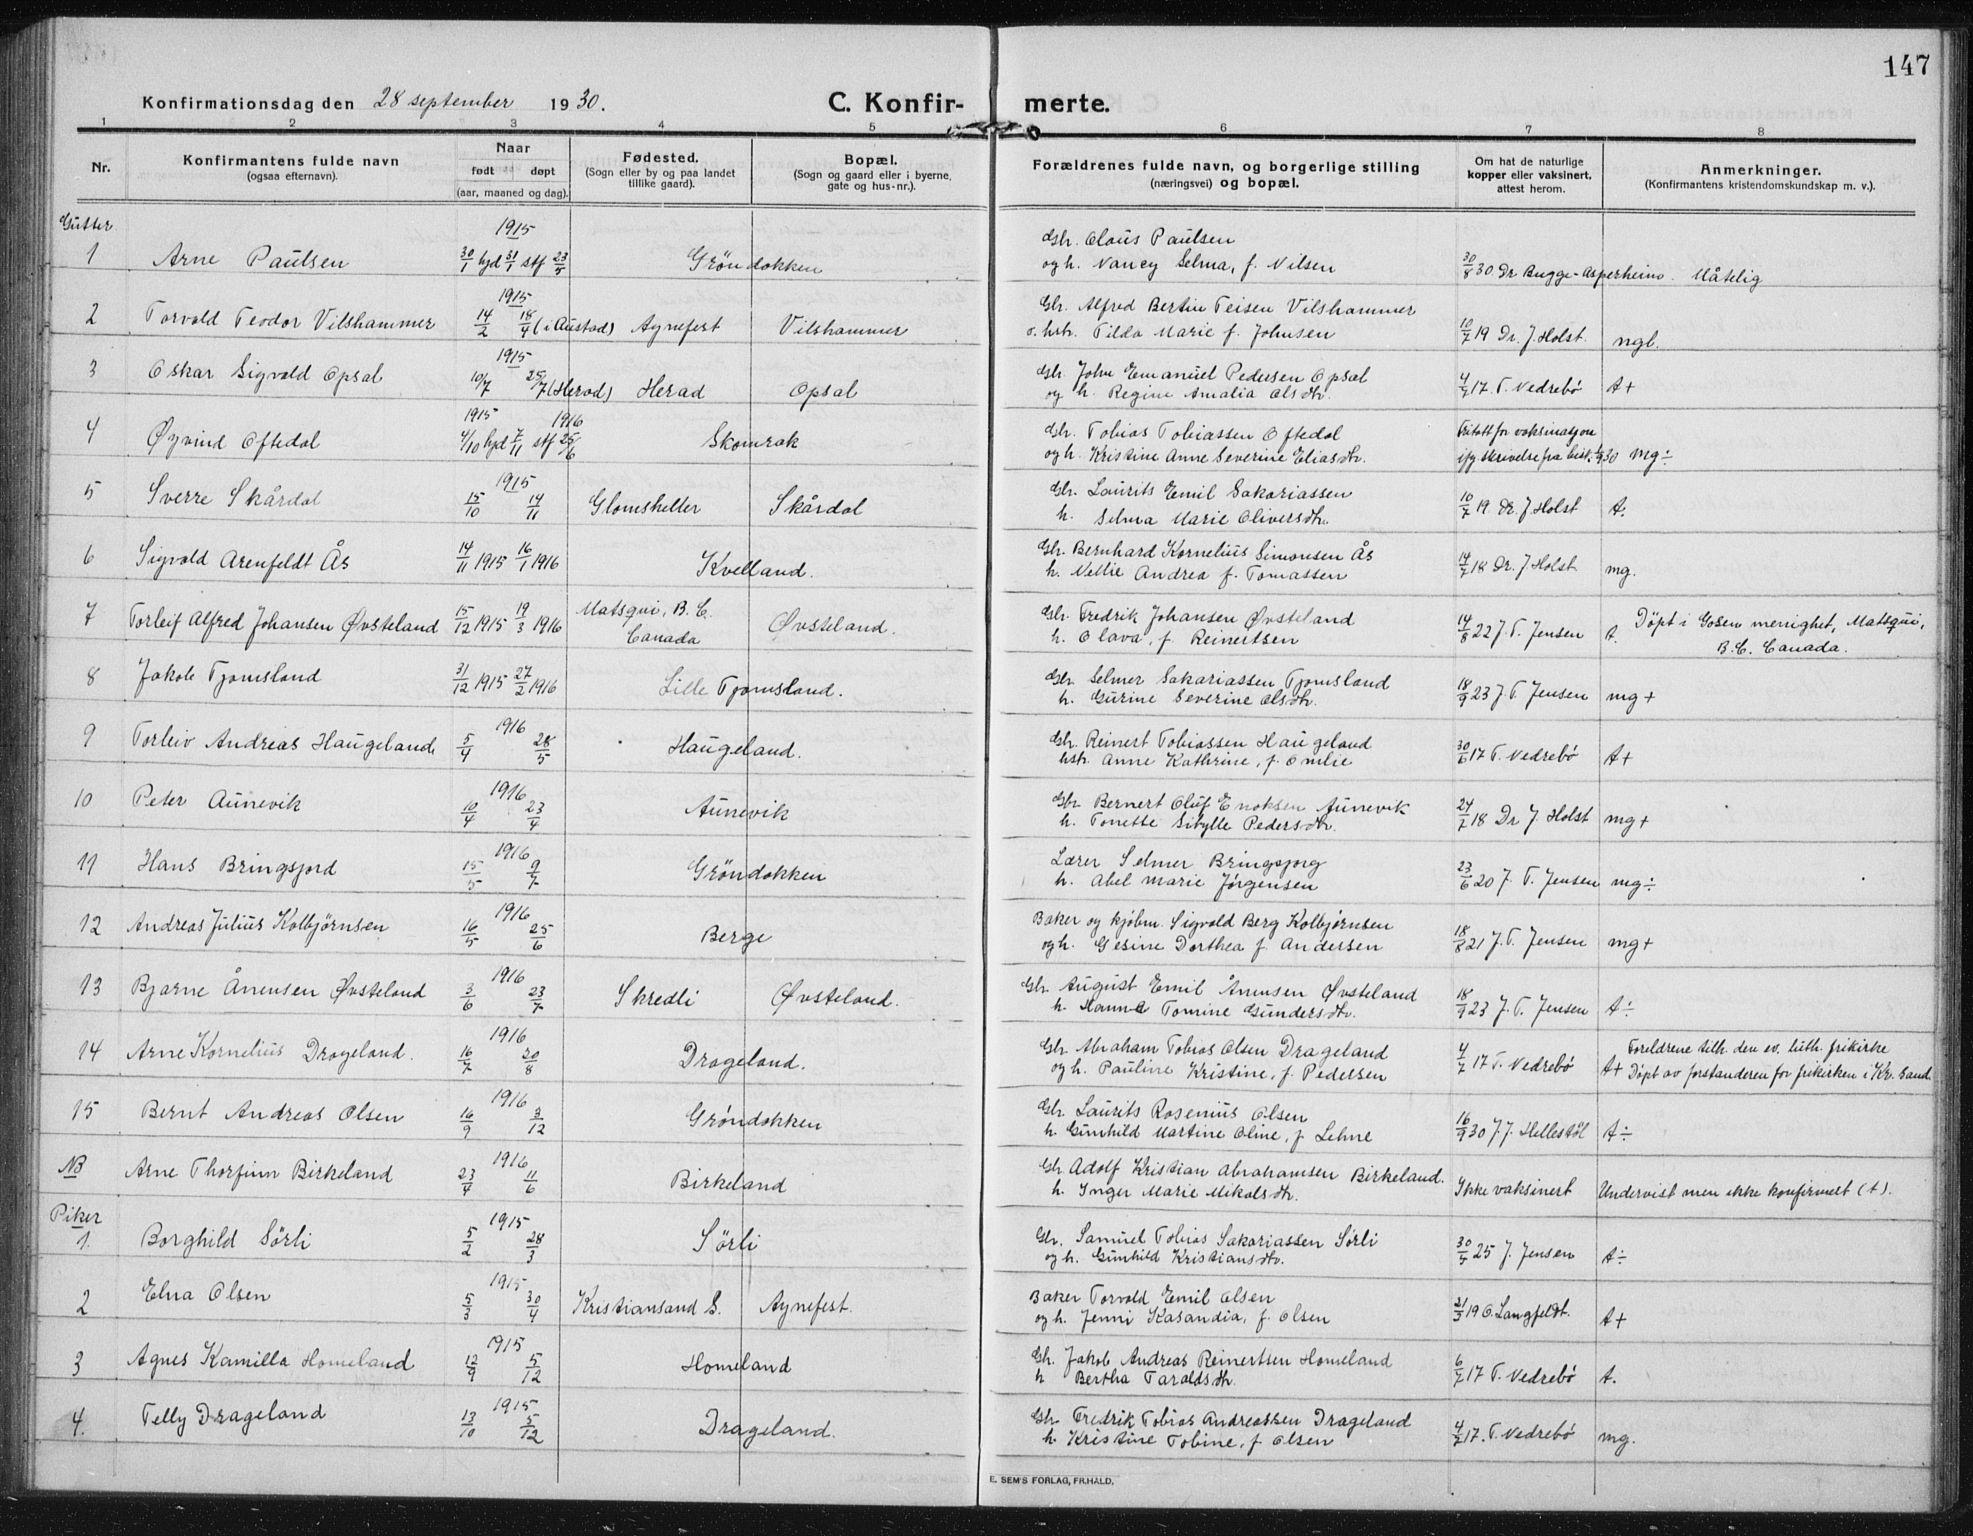 147
Konfirmationsdag den 28 september 1930. C. Konfir- merte.
1 2 3 4 5 6 7 8
Nr. Konfirmantens fulde navn (ogsaa efternavn). Naar født døpt (aar, maaned og dag). Fødested. (Sogn eller by og paa landet tillike gaard). Bopæl. (Sogn og gaard eller i byerne, gate og hus-nr.). Forældrenes fulde navn, og borgerlige stilling (næringsvei) og bopæl. Om hat de naturlige kopper eller vaksinert, attest herom. Anmerkninger. (Konfirmantens kristendomskundskap m. v.).
Gutter
1 Arne Paulsen 1915 30/1 hjd 31/1 stf 23/5 Gröndokken Gbr. Claus Paulsen
og h. Nancy Selma, f. Nilsen 30/8 30 Dr Bugge-Asperheim. Måtelig
2 Torvald Teodor Vilshammer 1915 14/2 18/4 (i Austad) Agnefest Vilshammer Gbr. Alfred Bertin Teisen Vilshammer
o. hstr. Tilda Marie f. Johnsen 10/7 19 Dr. J. Holst. ngl.
3 Oskar Sigvald Opsal 1915 10/7 25/7 (Herad) Herad Opsal Gbr. John Emanuel Pedersen Opsal
og h. Regine Amalia Olsdtr. 4/7 17. T. Vedrebö A+
4 Øyvind Oftedal 1915 4/10 hjd 7/11 1916 stf 25/6 Skomrak Gbr. Tobias Tobiassen Oftedal
og h. Kristine Anne Severine Eliasdtr. Fritatt for vaksinasjon
ifg skrivelse fra 30 mg÷
5 Sverre Skårdal 1915 15/10 14/11 Glomsheller Skårdal Gbr. Laurits Emil Sakariassen
h. Selma Marie Oliversdtr. 10/7 19 Dr. J Holst A÷
6 Sigvald Arenfeldt Ås 14/11 1915 16/1 1916 Kvelland. Gbr. Bernhard Kornelius Simonsen Ås
h. Nellie Andrea f. Tomassen 14/7 18 Dr. J Holst mg.
7 Torleif Alfred Johansen Øvsteland 15/12 1915 19/3 1916 Matsqui, B. C. Canada Øvsteland. Gbr. Fredrik Johansen Øvsteland
h. Olava, f. Reinertsen 14/8 22 J. T. Jensen A. Döpt i Gosen menighet, Matsqui,
B. C. Canada.
8 Jakob Tjomsland 31/12 1915 27/2 1916 Lille Tjomsland. Gbr. Selmer Sakariassen Tjomsland
h. Gurine Severine Olsdtr. 18/9 23 J. T. Jensen mg+
9 Torleiv Andreas Haugeland 1916 5/4 28/5 Haugeland. Gbr. Reinert Tobiassen Haugeland
hstr. Anne Kathrine, f. Omlie 30/6 17 T. Vedrebö A+
10 Peter Aunevik 1916 10/4 23/4 Aunevik Gbr Bernert Oluf Enoksen Aunevik
h. Tonette Sibylle Pedersdtr. 24/7 18 Dr J Holst mg+
11 Hans Bringsjord 1916 15/5 9/7 Gröndokken Lærer Selmer Bringsjorg
h. Abel Marie Jørgensen 23/6 20 J. T. Jensen mg÷
12 Andreas Julius Kolbjørnsen 1916 16/5 25/6 Berge Baker og kjøbm. Sigvald Berg Kolbjørnsen
og h. Gesine Dorthea f. Andersen 18/8 21 J. T. Jensen mg+
13 Bjarne Ånensen Øvsteland 1916 3/6 23/7 Skredli Øvsteland. Gbr. August Emil Ånensen Øvsteland
h. Hanna Tomine Gundersdtr. 18/9 23 J. T. Jensen A÷
14 Arne Kornelius Drageland. 1916 16/7 20/8 Drageland. Gbr. Abraham Tobias Olsen Drageland
og h. Pauline Kristine, f. Pedersen 4/7 17 T. Vedrebö A+ Foreldrene tilh. den ev. luth. frikirke
Döpt av forstanderen for frikirken i Kr. Sand.
15 Bernt Andreas Olsen 1916 16/9 3/12 Gröndokken Gbr. Laurits Rosenius Olsen
h. Gunhild Martine Oline, f. Lehne 16/9 30 J. J. Hellestöl A÷
NB Arne Thorfinn Birkeland 1916 23/4 11/6 Birkeland Gbr Adolf Kristian Abrahamsen Birkeland.
h. Inger Marie Mikalsdtr. Ikke vaksinert Undervist men ikke konfirmert (A).
Piker
1. Borghild Sörli 1915 5/2 28/3 Sörli Gbr. Samuel Tobias Sakariassen Sörli
og h. Gunhild Kristiansdtr. 30/5 25 J. Jensen A÷
2 Elna Olsen 1915 5/3 30/4 Kristiansand S. Agnefest. Baker Torvald Emil Olsen
og h. Jenni Kasandia, f. Olsen 21/3 19 O. Langfeldt. A+
3 Agnes Kamilla Homeland 1915 12/9 5/12 Homeland Gbr. Jakob Andreas Reinertsen Homeland
h Bertha Taraldsdtr. 6/7 17 T. Vedrebö A.
4. Telly Drageland 1915 13/10 5/12 Drageland. Gbr. Fredrik Tobias Andreassen Drageland
h. Kristine Tobine, f. Olsen 4/7 17. T. Vedrebö mg.
E. SEM'S FORLAG, FR.HALD.